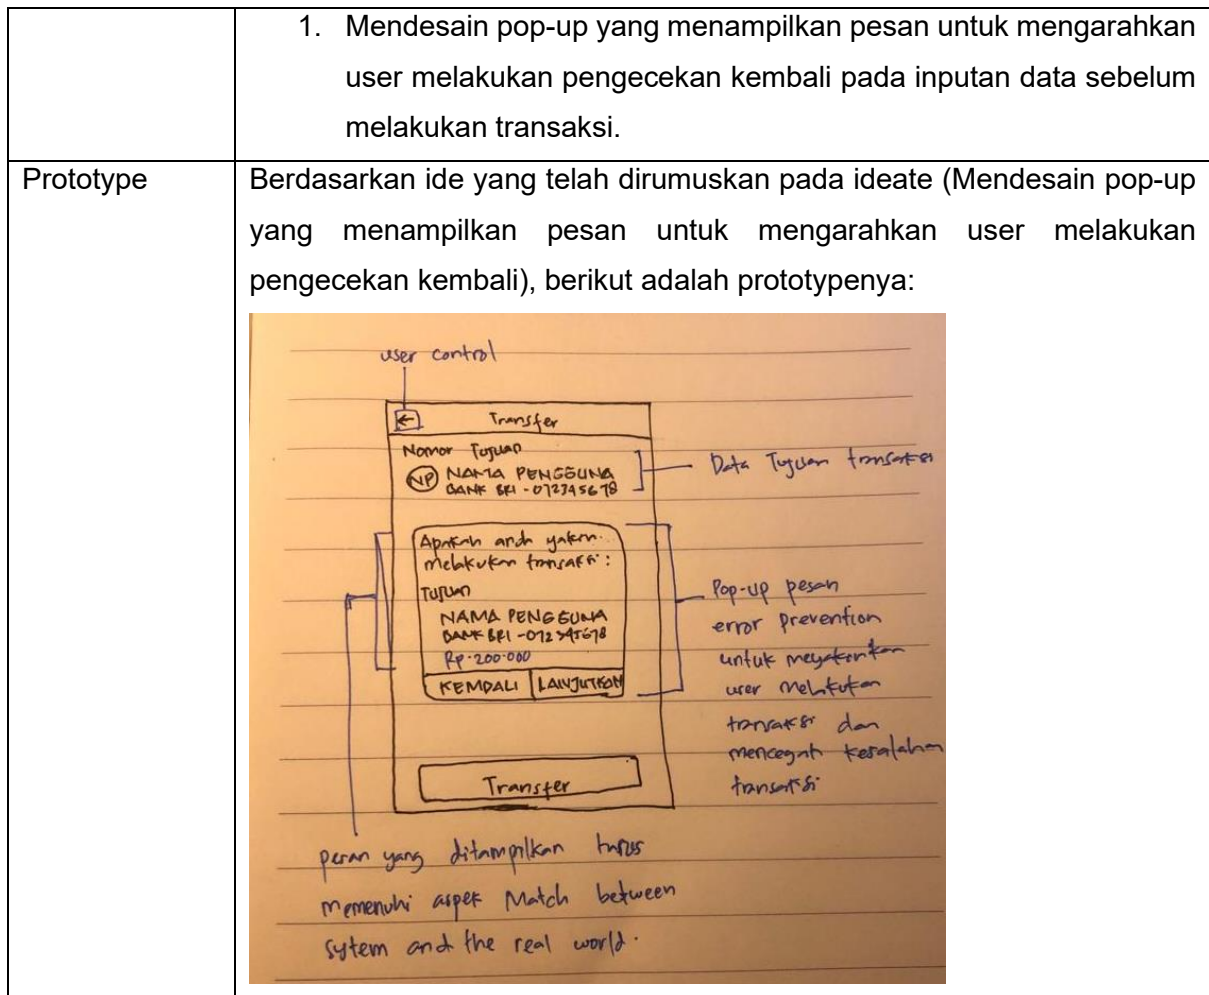 1. Mendesain pop-up yang menampilkan pesan untuk mengarahkan
user melakukan pengecekan kembali pada inputan data sebelum
melakukan transaksi.
Prototype
Berdasarkan ide yang telah dirumuskan pada ideate (Mendesain pop-up
yang menampilkan pesan untuk mengarahkan user melakukan
pengecekan kembali), berikut adalah prototypenya:
user control
← Transfer
Nomor Tujuan
NP NAMA PENGGUNA
BANK BRI - 072345678
Data Tujuan transaksi
Apakah anda yakin
melakukan transaksi :
Tujuan
NAMA PENGGUNA
BANK BRI - 072345678
Rp. 200.000
KEMBALI LANJUTKAN
Pop-up pesan
error prevention
untuk meyakinkan
user melakukan
transaksi dan
mencegah kesalahan
transaksi
Transfer
pesan yang ditampilkan harus
memenuhi aspek Match between
sytem and the real world.